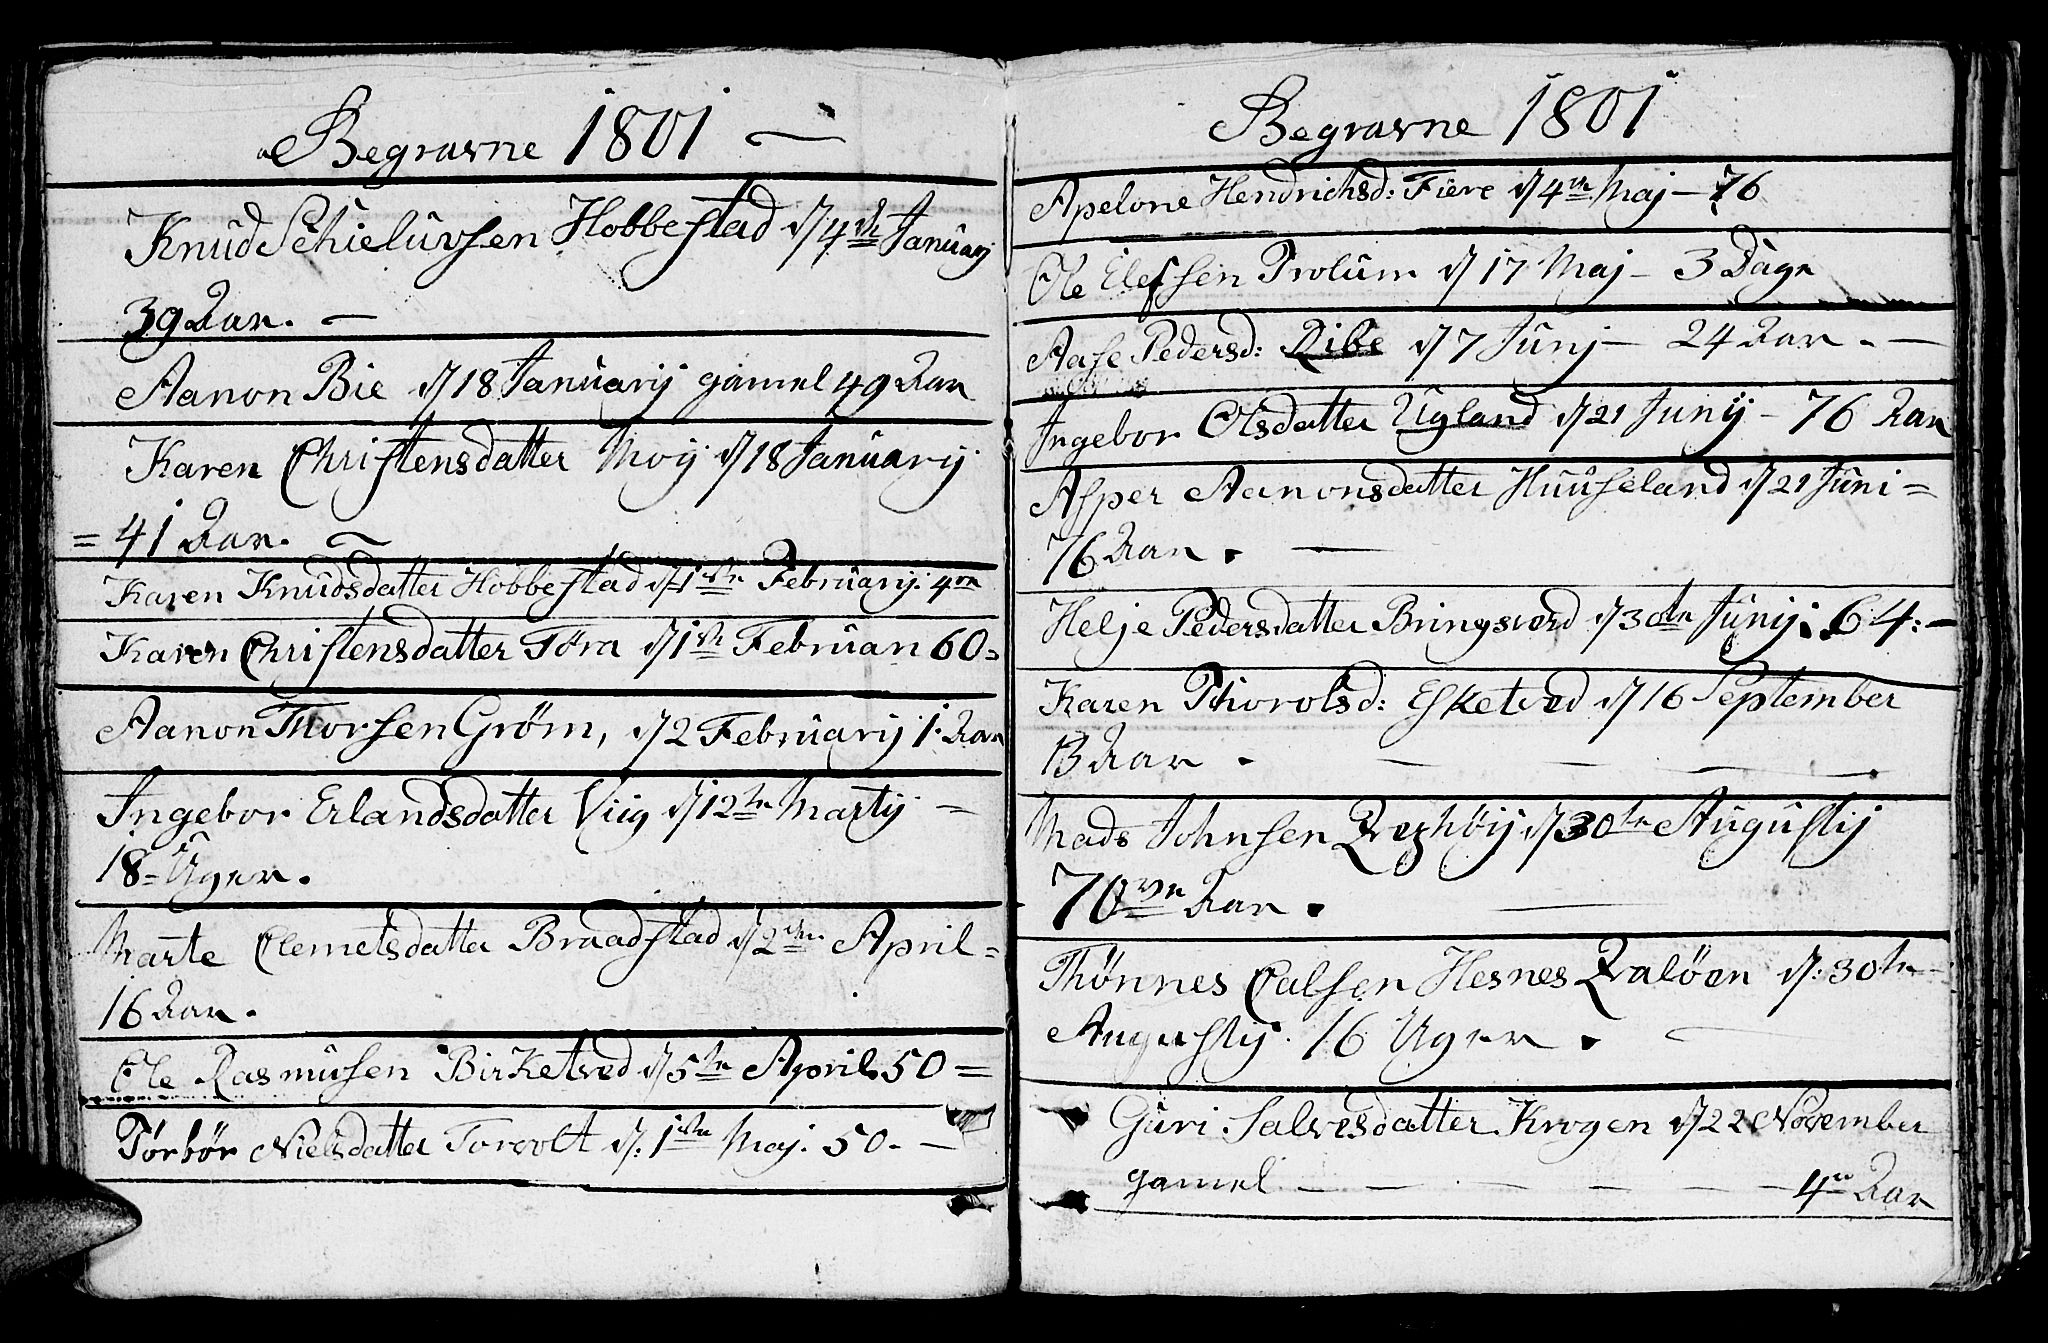 Begravne 1801
Knud Schielursen Hobbestad d 4de Januarj
39 Aar.
Aanon Bie d 18 Januarij gamel 49 Aar
Karen Christensdatter Moij d 18 Januarij
= 41 Aar.
Karen Knudsdatter Hobbestad d 1ste Februarij. 4re
Karen Christensdatter Töra d 1ste Februari 60=
Aanon Thorsen Gröm, d 2 Februarij 1. Aar
Ingebor Erlandsdatter Viig d 12te Martij =
18= Uger.
Marte Clemetsdatter Braadstad d 2den April=
16 Aar.
Ole Rasmusen Birketved d 5te April. 50 =
Törbör Nielsdatter Torvolt d: 1ste Maj. 50. —
Begravne 1801
Apelone Hendrichsd: Fiere d 4de Maj — 76
Ole Elefsen Prolum d 17 Maj — 3 Dage
Aase Pedersd: Ribe d 7 Junj — 24 Aar. —
Ingebor Olsdatter Ugland d 21 Junij — 76 Aar
Asper Aanonsdatter Huuseland d 21 Juni =
76 Aar. —
Helje Pedersdatter Bringsverd d 30te Junij. 64: —
Karen Thorolsd: Esketved d 16 September
13 Aar. —
Mads Johnsen d 30te Augustij
70ve Aar.
Thönnes Calsen Hesnes d: 30te
Augustij. 16 Uger.
Guri Salvesdatter Krogen d 22 November
gamel — — — — — — 4re Aar